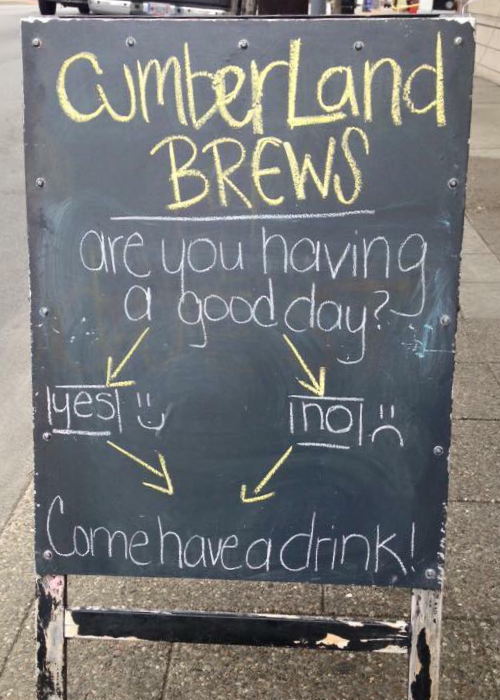 Cumberland
BREWS
are you having
a good day?
yes :) no :(
Come have a drink!